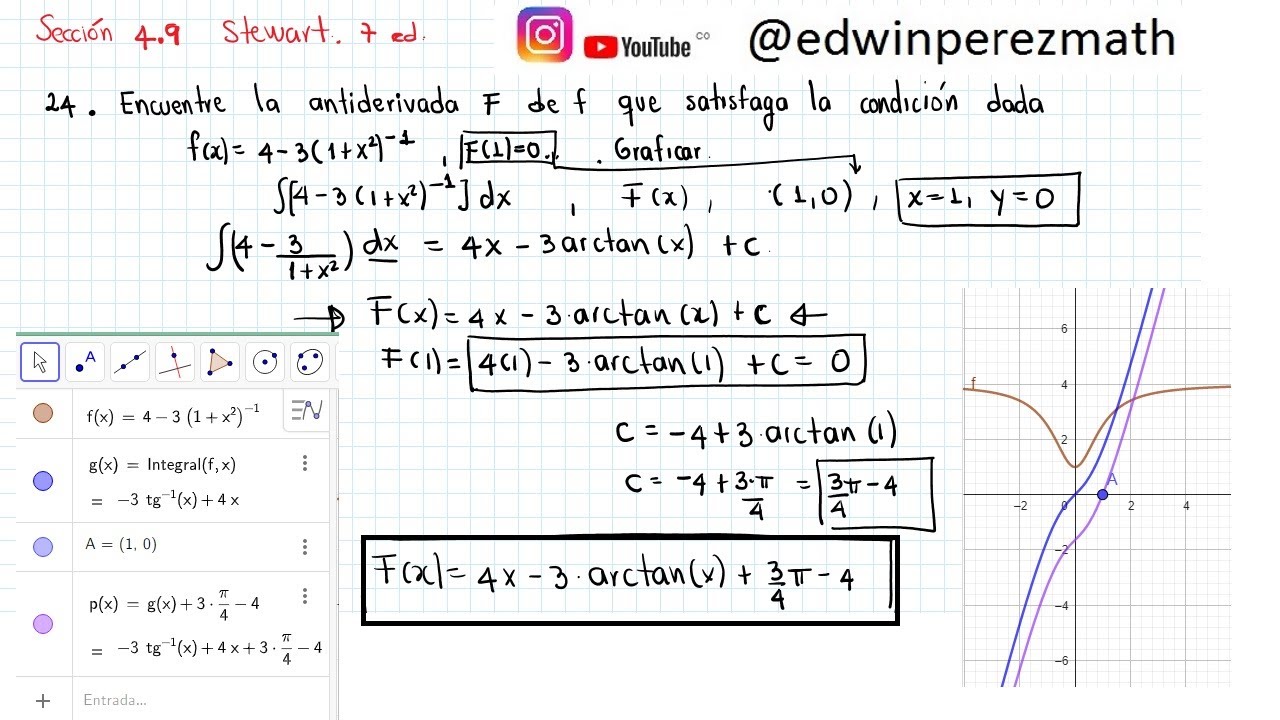 Sección 4.9 Stewart. 7 ed.
YouTube CO
@edwinperezmath
24. Encuentre la antiderivada F de f que satisfaga la condición dada
f(x) = 4 - 3(1+x²)⁻¹ , F(1)=0. . Graficar.
∫[4 - 3(1+x²)⁻¹] dx , F(x), (1,0), x=1, y=0
∫(4 - 3/(1+x²)) dx = 4x - 3 arctan(x) + c.
→ F(x) = 4x - 3·arctan(x) + c ←
F(1) = 4(1) - 3·arctan(1) + c = 0
c = -4 + 3·arctan(1)
c = -4 + 3·π/4 = 3/4 π - 4
F(x) = 4x - 3·arctan(x) + 3/4 π - 4
A
f(x) = 4 - 3 (1 + x²)⁻¹
g(x) = Integral(f, x)
= -3 tg⁻¹(x) + 4 x
A = (1, 0)
p(x) = g(x) + 3 · π/4 - 4
= -3 tg⁻¹(x) + 4 x + 3 · π/4 - 4
+ Entrada...
6
f
4
2
A
-2 0 2 4
-2
-4
-6